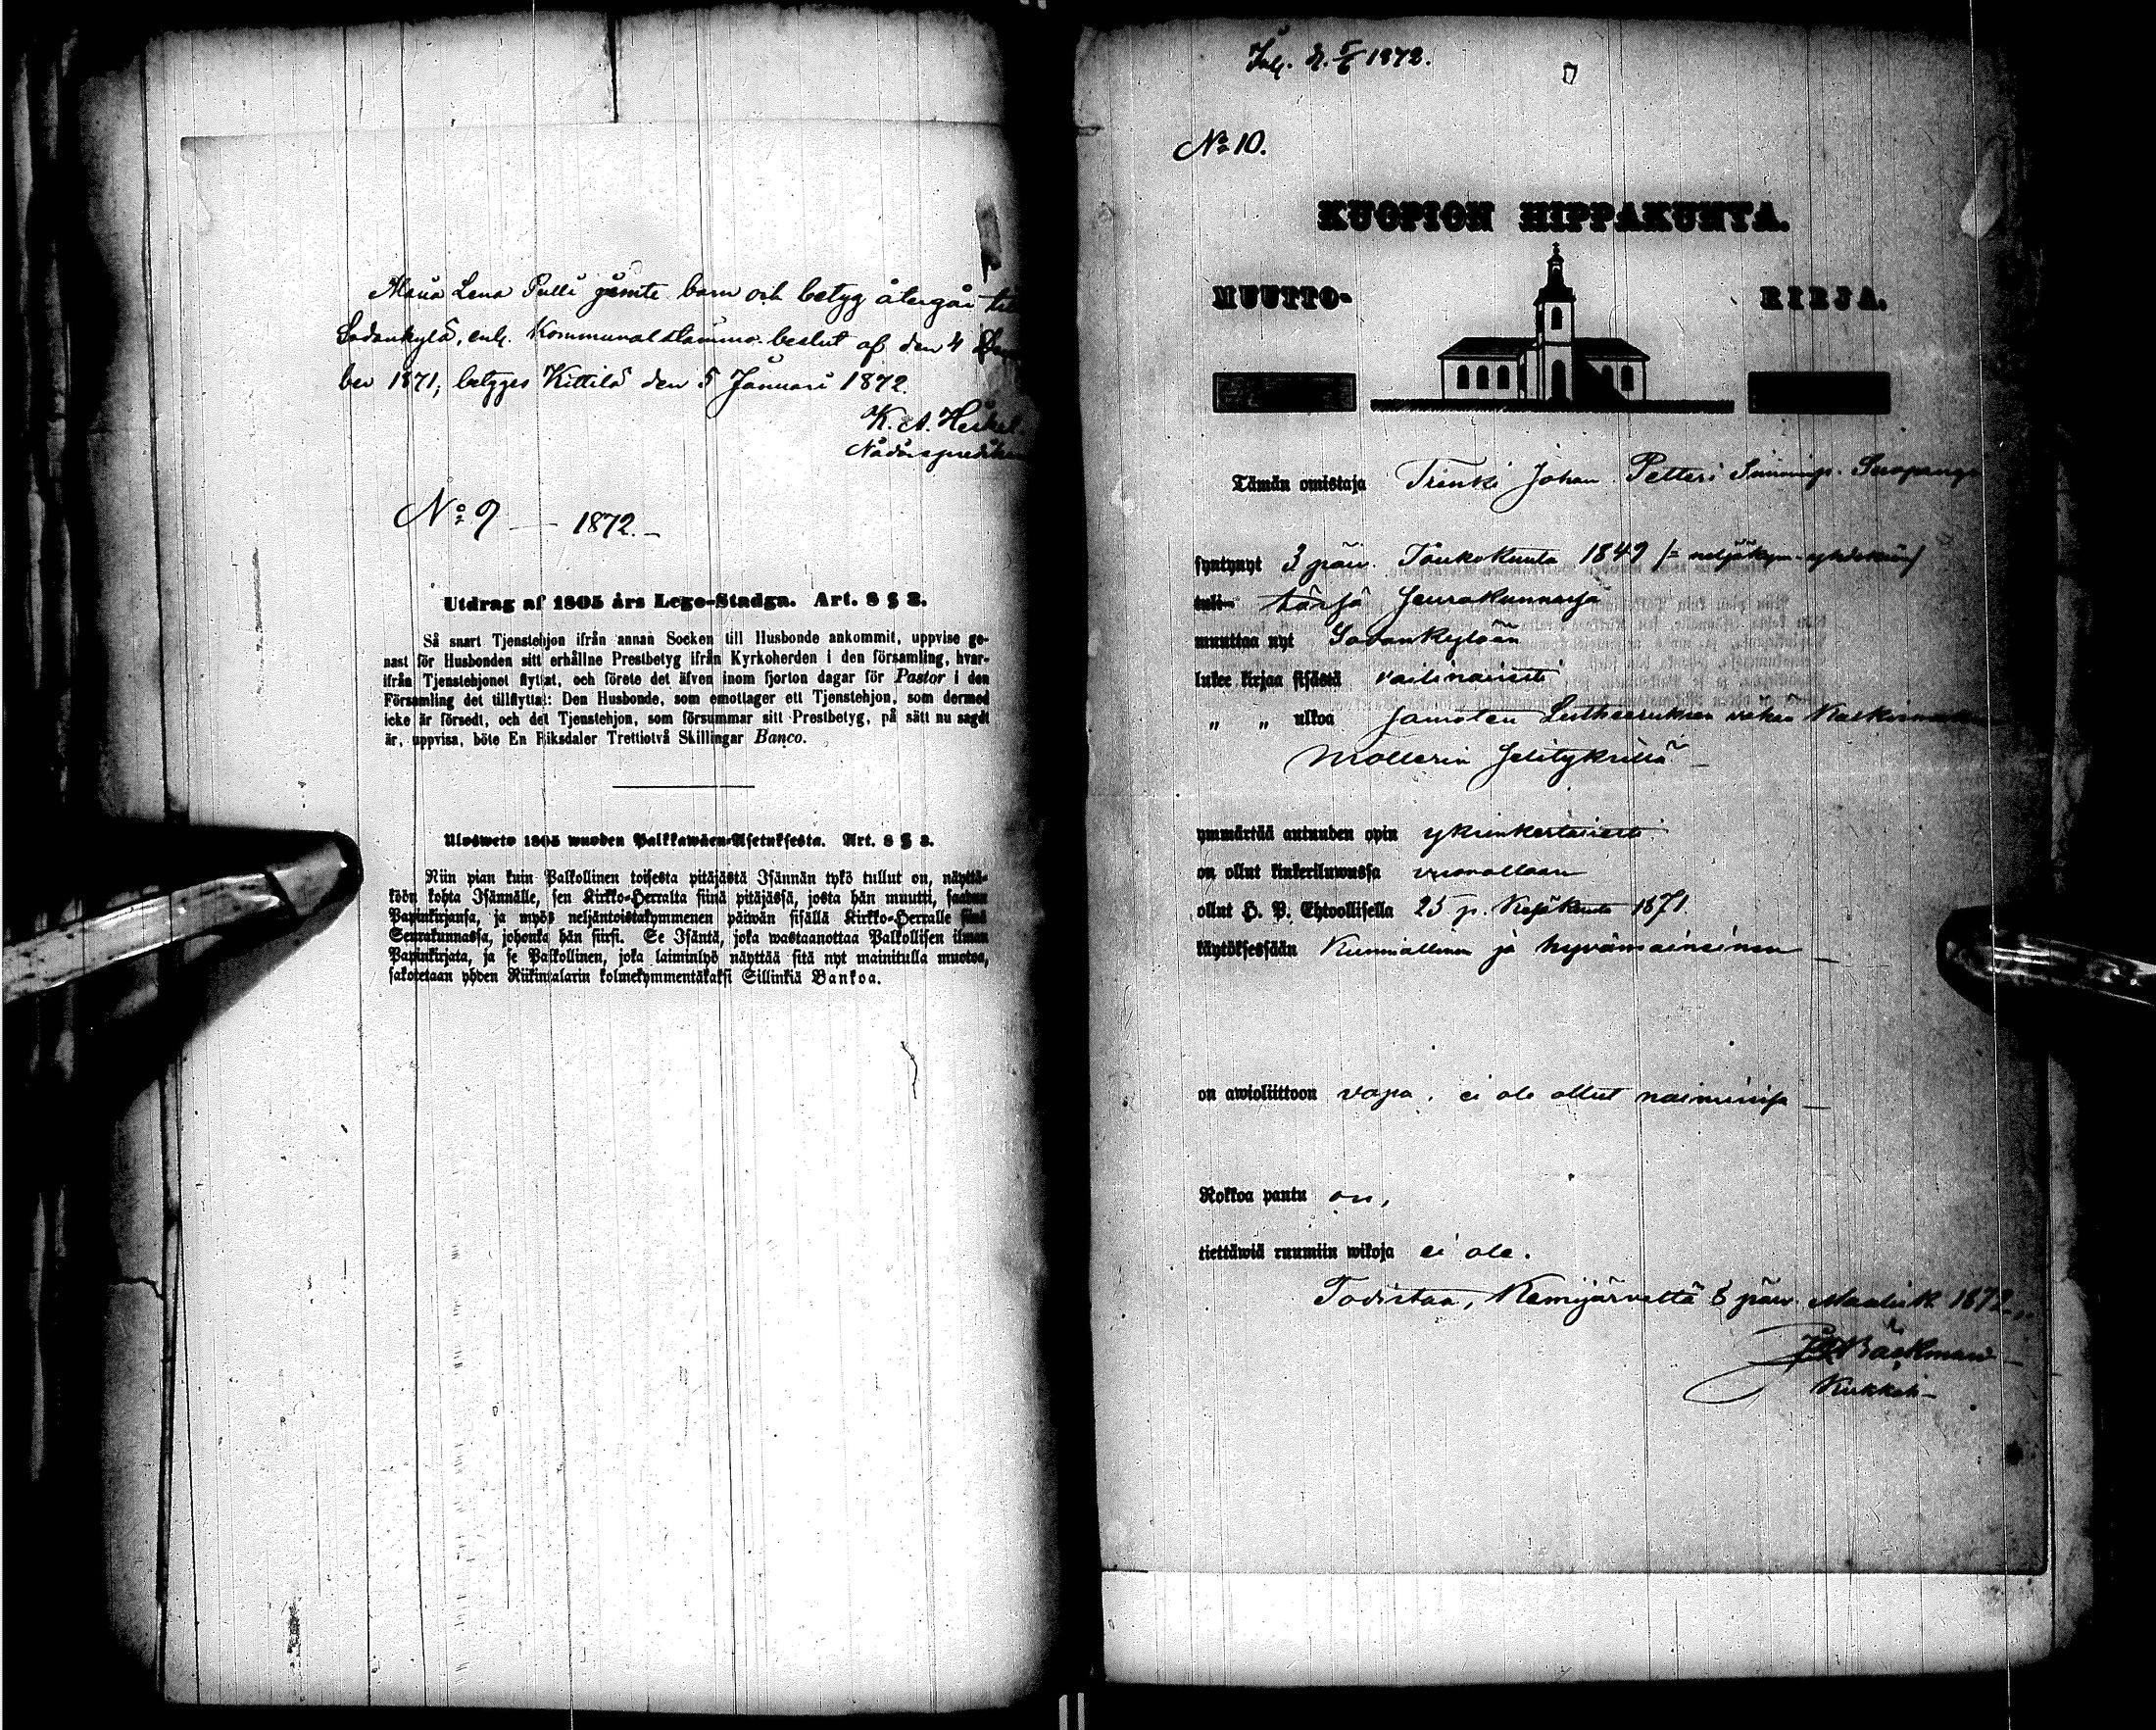 Maria Lena Pulli jemte barn och betyg återgår till
Sodankylä, enl. Kommunalstämmo beslut af den 4
ber 1871, betyges Kittilä den 5 Januari 1872.
K. A. Heikel
Nådårspredikan
No 9 — 1872.
Utdrag af 1805 års Lego-Stadga. Art. 8 § 3.
Så snart Tjenstehjon ifrån annan Socken till Husbonde ankommit, uppvise ge-
nast för Husbonden sitt erhållne Prestbetyg ifrån Kyrkoherden i den församling, hvar-
ifrån Tjenstehjonet flyttat, och förete det äfven inom fjorton dagar för Pastor i den
Församling det tillflyttat: Den Husbonde, som emottager ett Tjenstehjon, som dermed
icke är försedt, och det Tjenstehjon, som försummar sitt Prestbetyg, på sätt nu sagdt
är, uppvisa, böte En Riksdaler Trettiotvå Skillingar Banco.
Ulosweto 1805 wuoden Palkkawäen-Asetuksesta. Art. 8 § 3.
Niin pian kuin Palkollinen toisesta pitäjästä Isännän tykö tullut on, näyttä-
köön kohta Isännälle, sen Kirkko-Herralta siinä pitäjässä, josta hän muutti, saadun
Papinkirjansa, ja myös neljäntoistakymmenen päiwän sisällä Kirkko-Herralle siinä
Seurakunnassa, johonka hän siirsi. Se Isäntä, joka wastaanottaa Palkollisen ilman
Papinkirjata, ja se Palkollinen, joka laiminlyö näyttää sitä nyt mainitulla muotoa,
sakotetaan yhden Riikintalarin kolmekymmentäkaksi Sillinkiä Bankoa.
d. 5/6 1872.
No 10.
KUOPION HIPPAKUNTA.
MUUTTO- KIRJA.
Tämän omistaja Trinki Johan Petteri
syntynyt 3 päiv. Toukokuuta 1849
tuli tässä seurakunnassa
muuttaa nyt Sodankylään
lukee kirjaa sisästä vailinaisesti
„ „ ulkoa Lutheeruksen vähän
Möllerin selityksillä
ymmärtää autuuden opin yksinkertaisesti
on ollut kinkeriluwussa vuorollaan
ollut H. P. Ehtoollisella 25 p. Kesäkuuta 1871.
käytöksessään kunniallinen ja hyvämaineinen
on awioliittoon vapa, ei ole ollut naimisissa
Rokkoa pantu on,
tiettäwiä ruumiin wikoja ei ole.
Todistaa, Kemijärveltä päiv. Maalisk. 1872.
Bäckman
Kirkkoh.